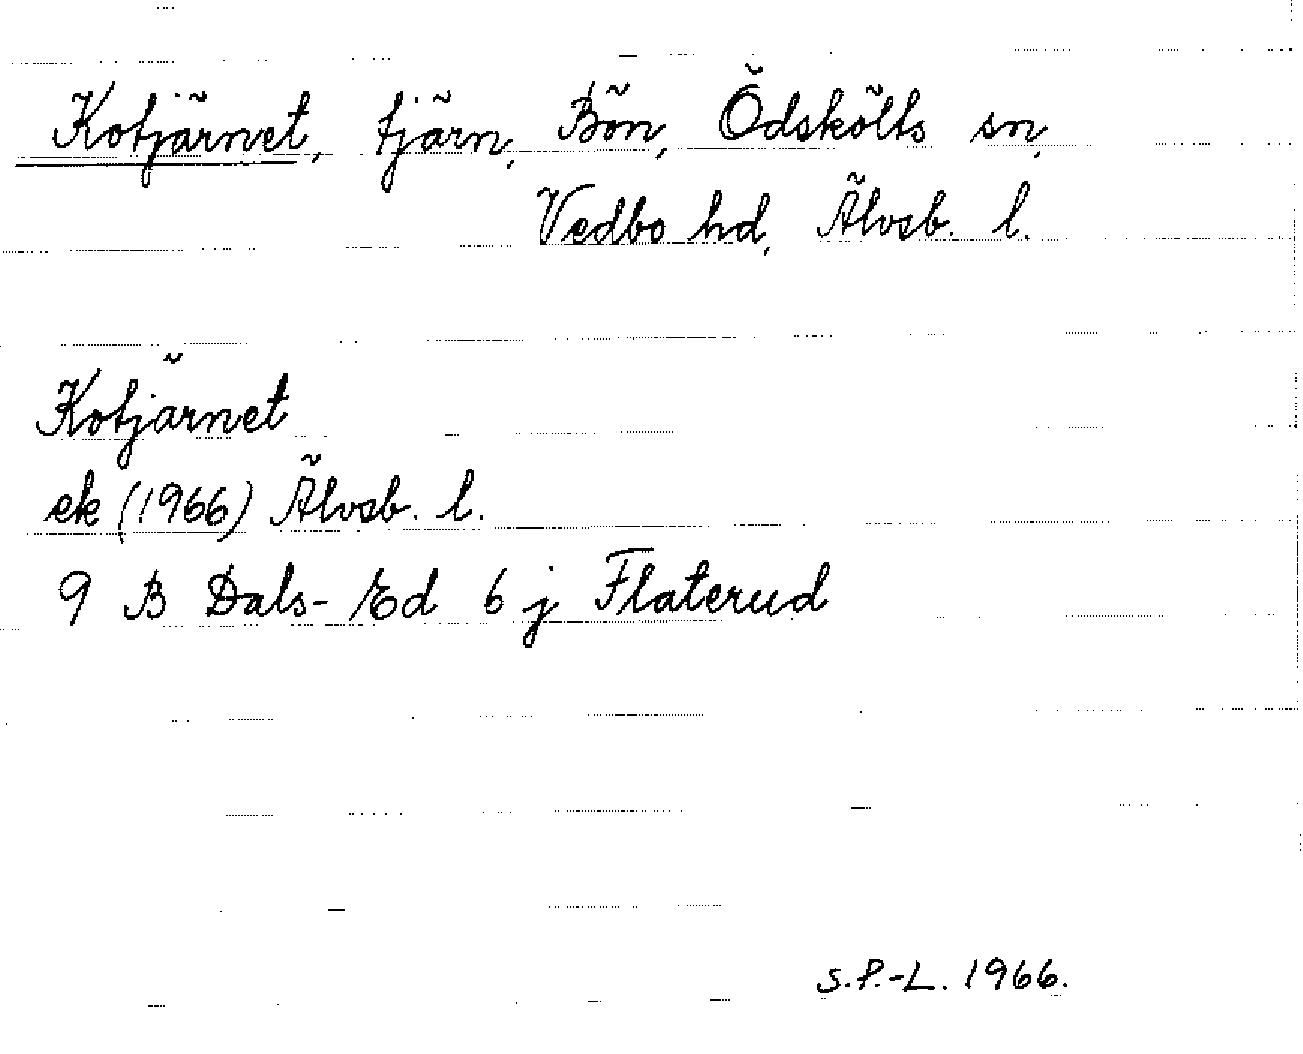 Kotjärnet, tjärn, Bön, Ödskölts sn,
Vedbo hd, Älvsb. l.
Kotjärnet
ek (1966) Älvsb. l.
9 B Dals-Ed 6 j Flaterud
S.P.-L. 1966.